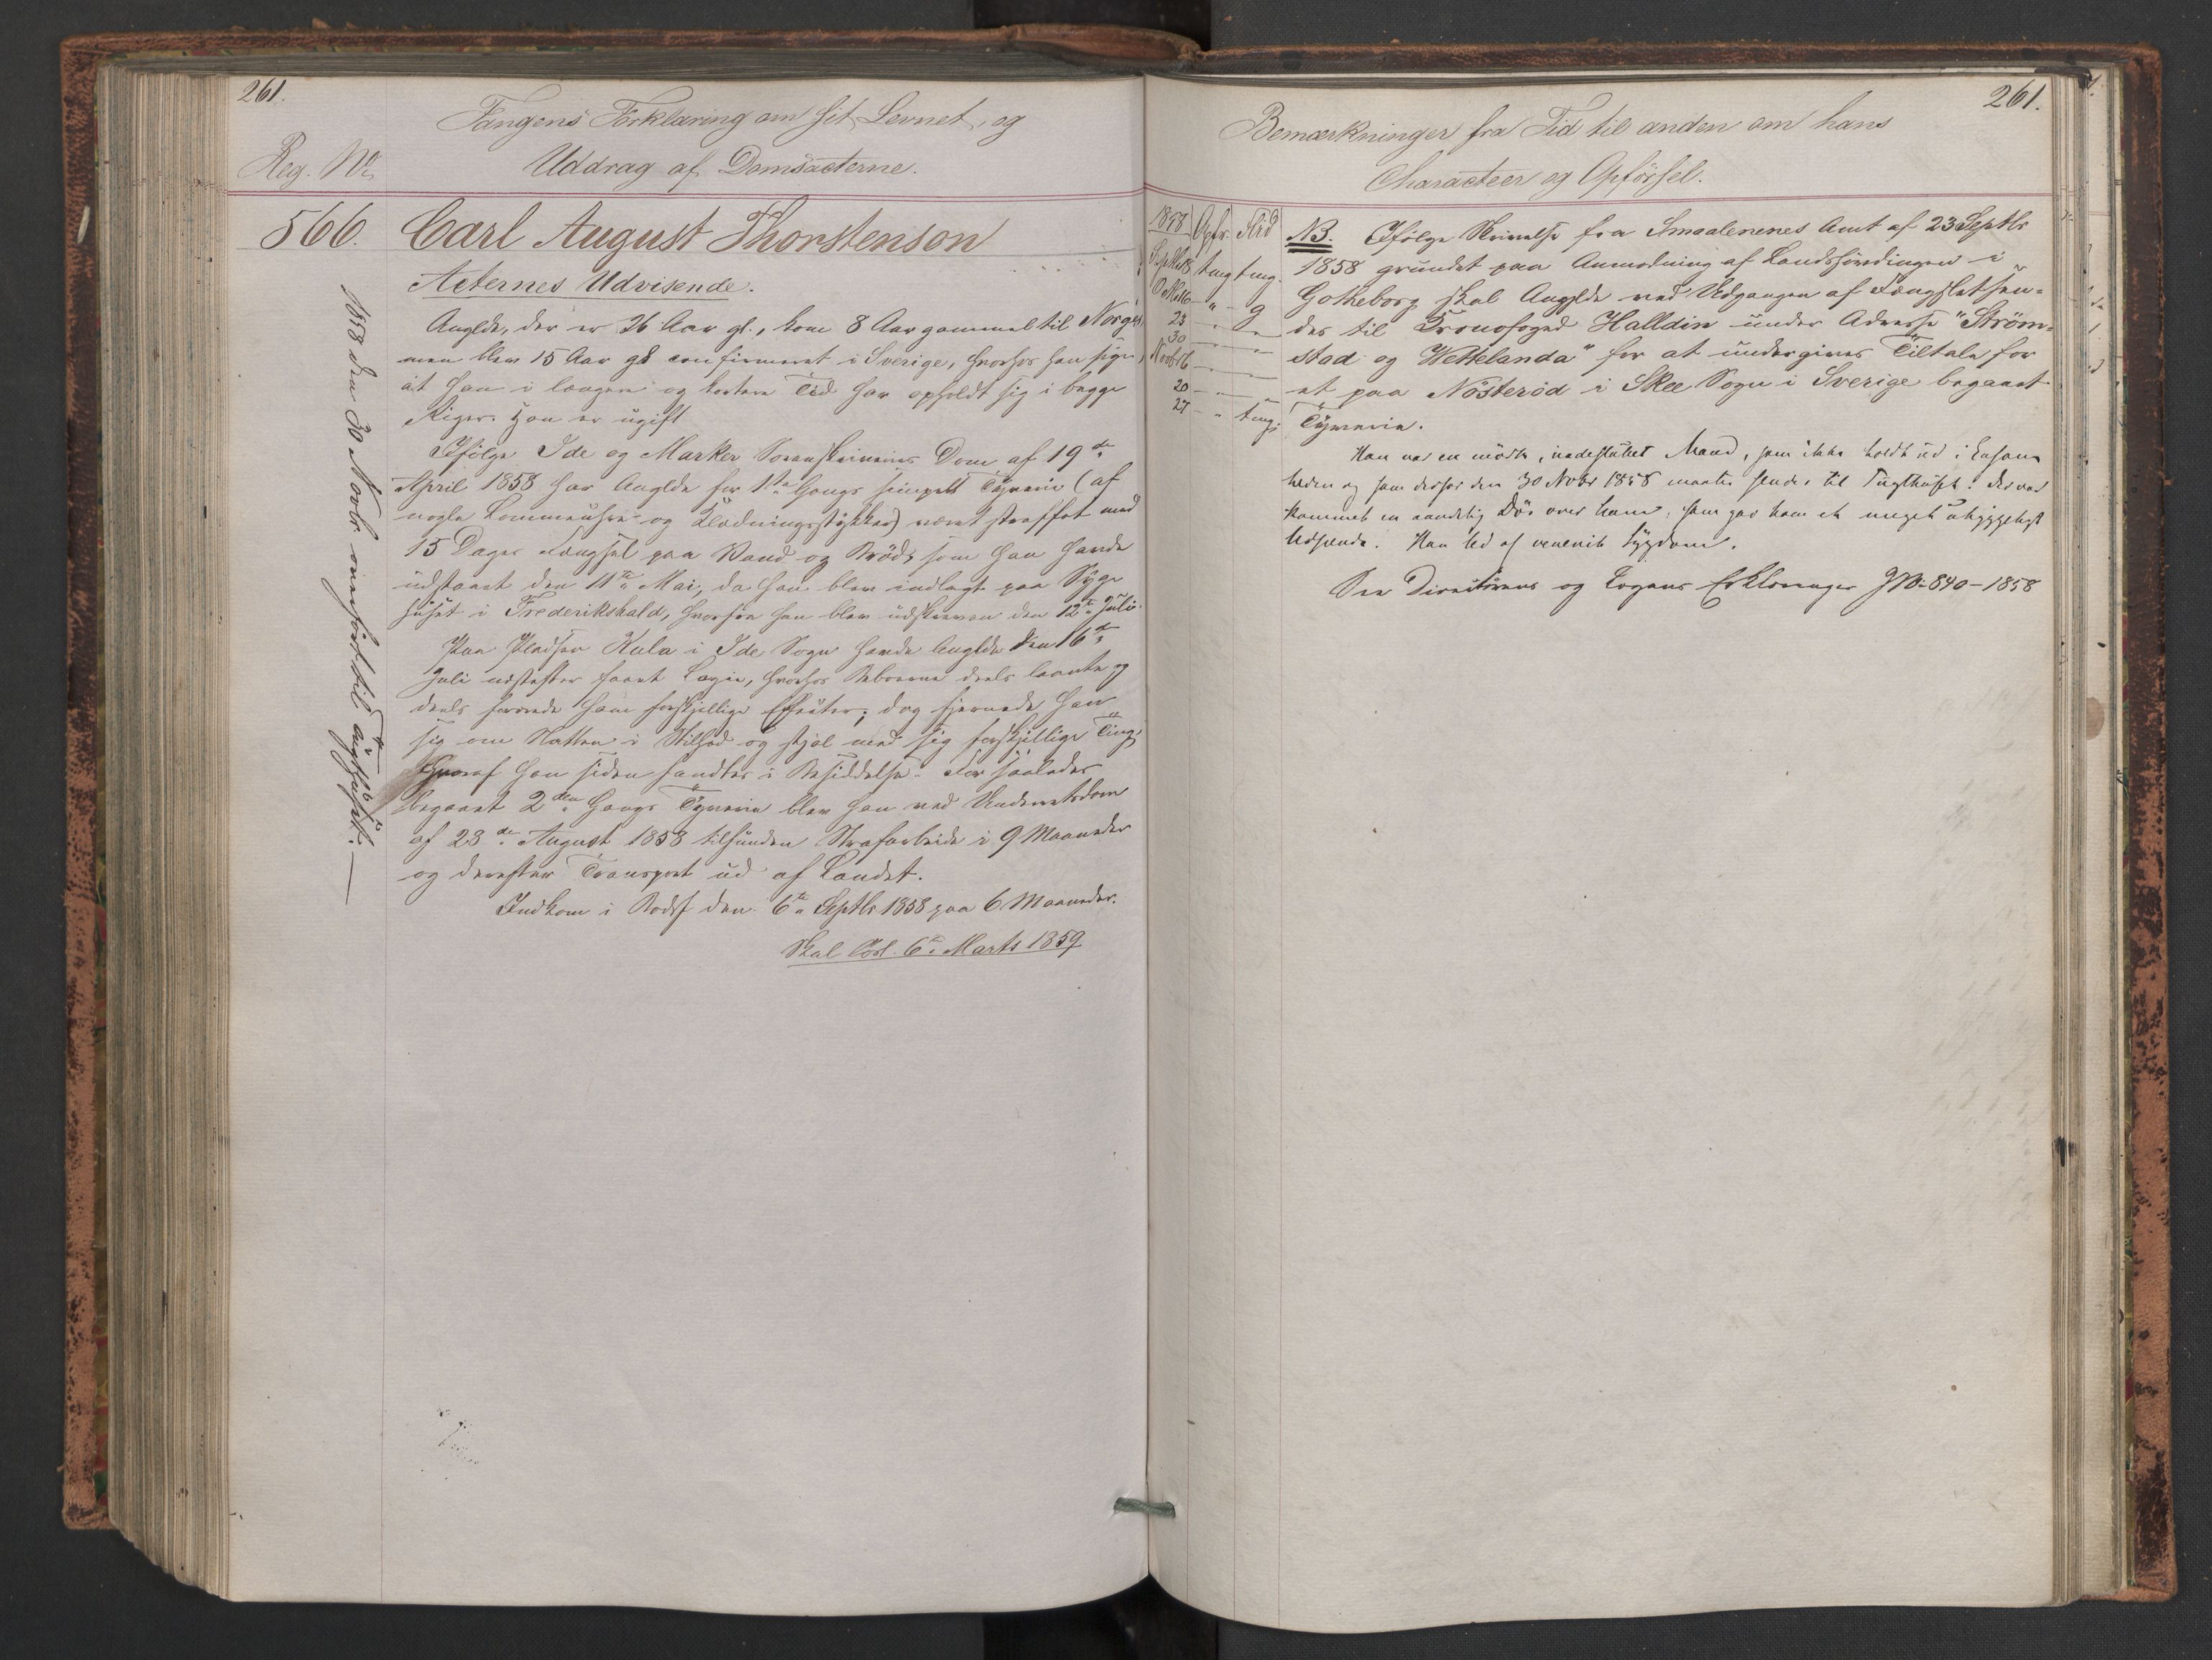 261.
Fangens Forklæring om sit Levnet, og
Reg. No
Uddrag af Domsacterne.
566. Carl August Thorstenson
Acternes Udvisende.
Anglde, der er 26 Aar gl., kom 8 Aar gammel til Norge,
men blev 15 Aar gl confirmeret i Sverige, hvorhos han siger,
at han i længere og kortere Tid har opholdt sig i begge
Riger. Han er ugift
Ifølge Ide og Marker Sorenskriveries Dom af 19de
April 1858 har Anglde for 1ste Gangs simpelt Tyverie (af
nogle Lommeuhre og Klædningsstykker) været straffet med
15 Dages Fængsel paa Vand og Brød, som han havde
udstaaet den 11te Mai, da han blev indlagt paa Syge
huset i Frederikshald, hvorfra han blev udskreven den 12te Juli.
Paa Pladsen Kula i Ide Sogn havde Anglde den 16de
Juli næstefter faaet Logie, hvorhos Beboerne deels laante og
deels forærede ham forskjellige Effecter; dog fjernede han
sig om Natten i Stilhed og stjal med sig forskjellige Ting,
hvoraf han siden fandtes i Besiddelse. For saaledes
begaaet 2den Gangs Tyverie blev han ved Underretsdom
af 23de August 1858 tilfunden Strafarbeide i 9 Maaneder
og derefter Transport ud af Landet.
Indkom i Bodsf den 6te Septbr 1858 paa 6 Maaneder.
Skal løsl. 6te Marts 1859
1858 den 30 Novbr overført til Tugthuset.
261.
Bemærkninger fra Tid til anden om hans
Characteer og Opførsel.
1858 Opfr. Flid
Septbr 18 tmg tmg.
Otbr 16 " g
23 " "
30 " "
Novbr 6
20 " "
27 " tmg.
NB. Ifølge Skrivelse fra Smaalenenes Amt af 23 Septbr
1858 grundet paa Anmodning af Landshövdingen i
Gotheborg skal Anglde ved Udgangen af Fængslet sen-
des til Cronofoged Halldin under Adresse "Ström-
stad og Wettelanda" for at undergives Tiltale for
et paa Nösteröd i Skee Sogn i Sverige begaaet
Tyverie.
Han var en mørk, indesluttet Mand, som ikke holdt ud i Ensom
heden og som derfor den 30 Novbr 1858 maatte sendes til Tugthuset. Der var
kommet en aandelig Døs over ham, som gav ham et meget uhyggeligt
Udseende. Han led af venerisk Sygdom.
See Directeurens og Lægens Erklæringer JNo 840-1858